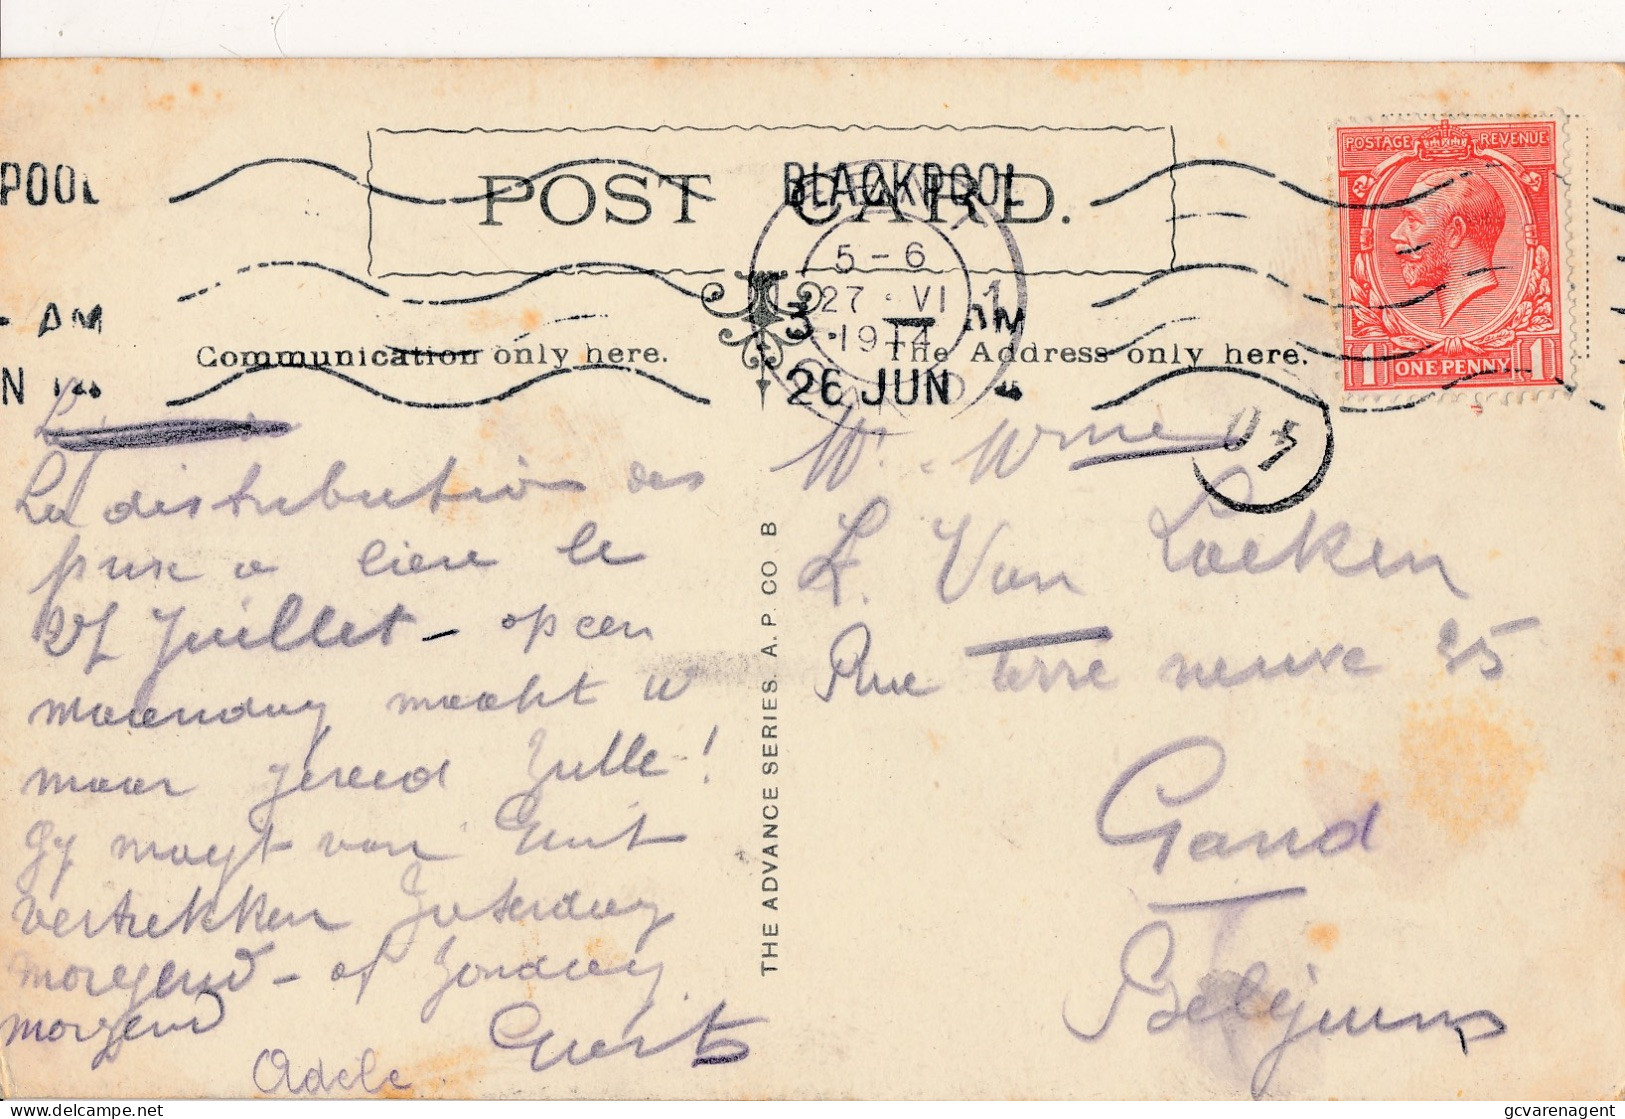 POSTAGE REVENUE
ONE PENNY
1 1
POST CARD.
POOL
BLACKPOOL
5-6
27 · VI
1914
AM
26 JUN
Communication only here.
The Address only here.
La distribution des
prix a liere le
27 Juillet - op een
maandag maakt u
maar gereed zulle!
Gy moogt van Gent
vertrekken Zaterdag
morgend - of Zondag
morgend
Adele
Geerts
THE ADVANCE SERIES. A. P. CO B
L. Van Loeken
Rue terre neuve 35
Gand
Belgium
delcampe.net
gcvarenagent